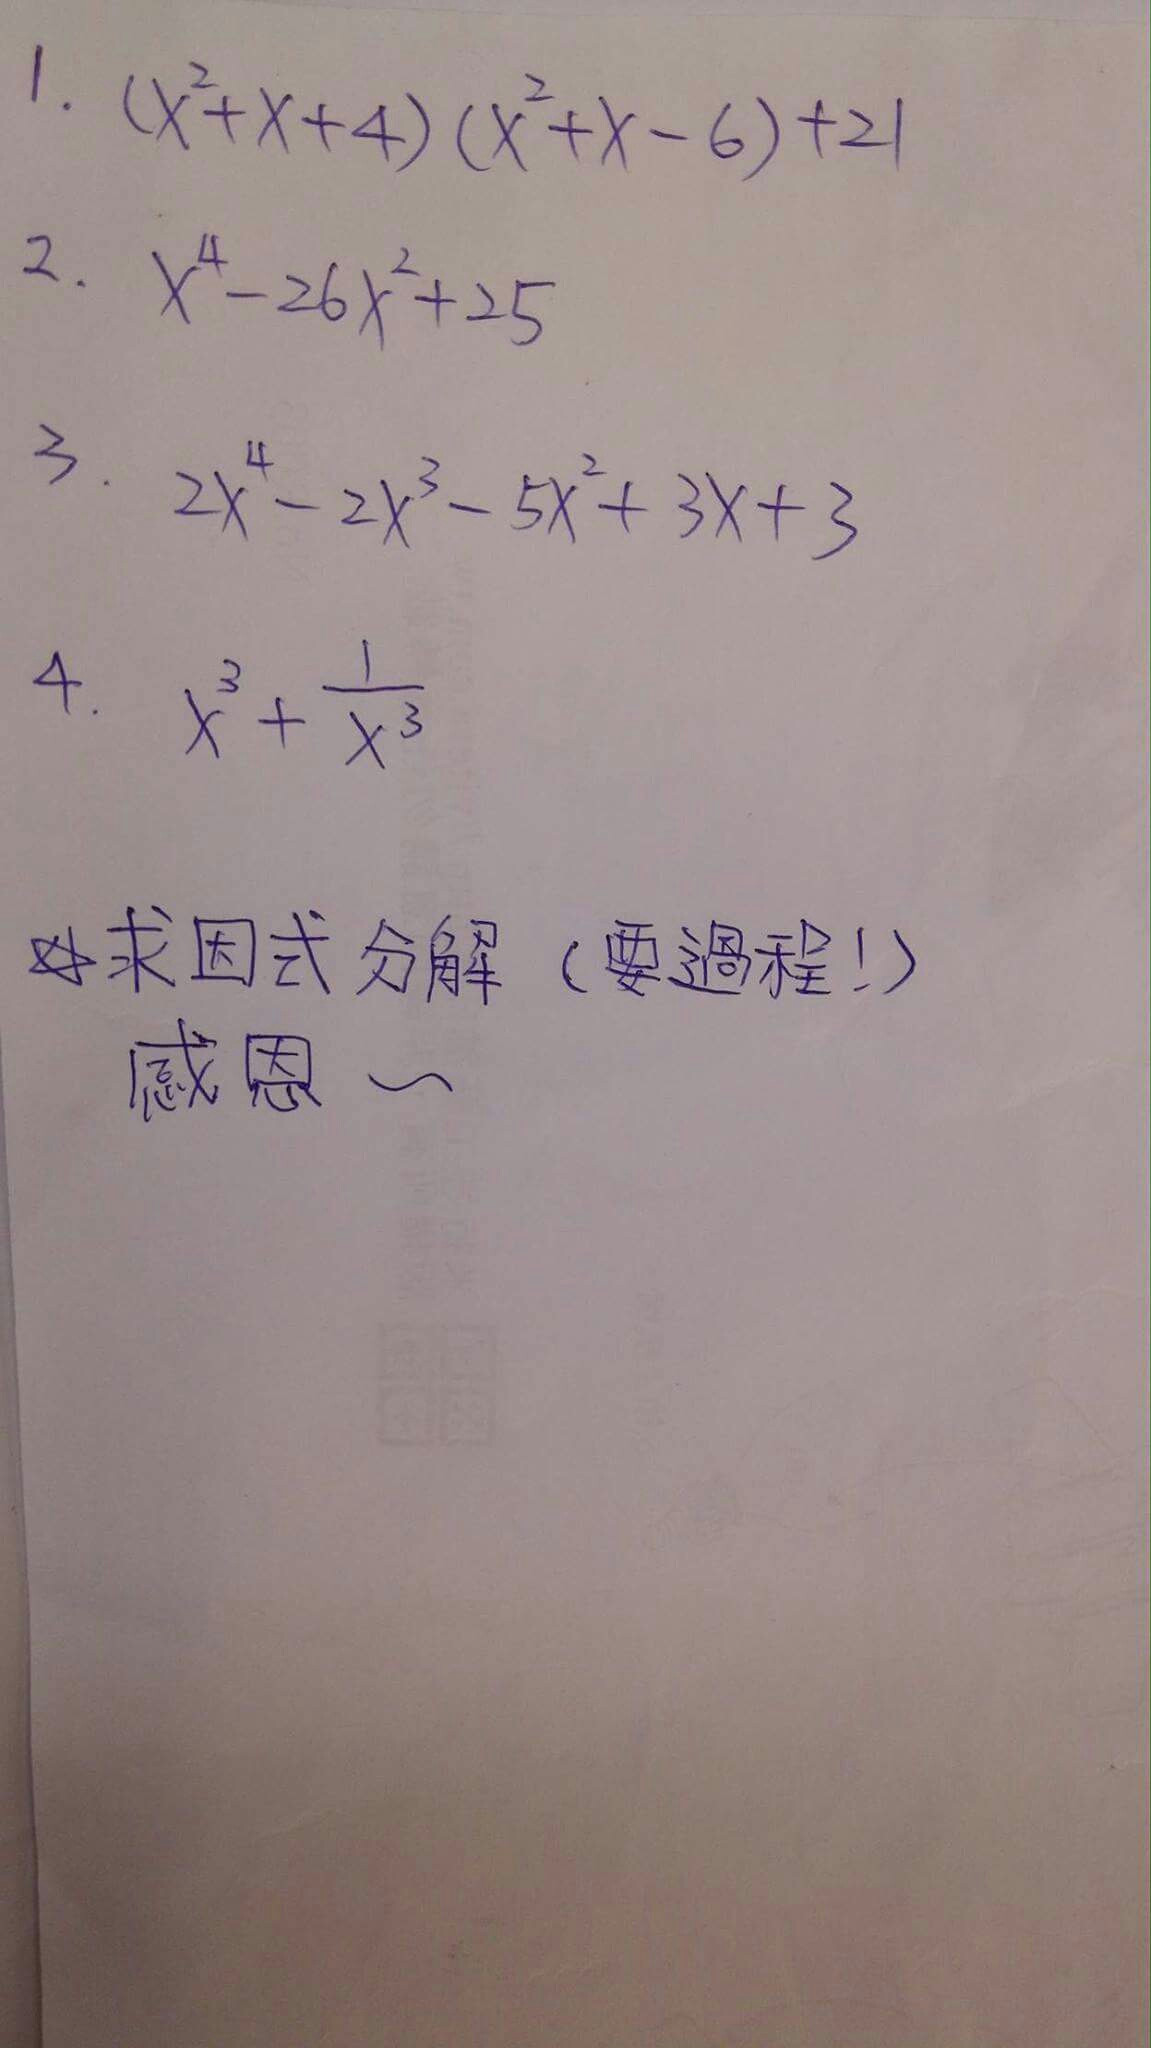 1. (x²+x+4)(x²+x-6)+21
2. x⁴-26x²+25
3. 2x⁴-2x³-5x²+3x+3
4. x³+1/x³
☆求因式分解(要過程!)
感恩~